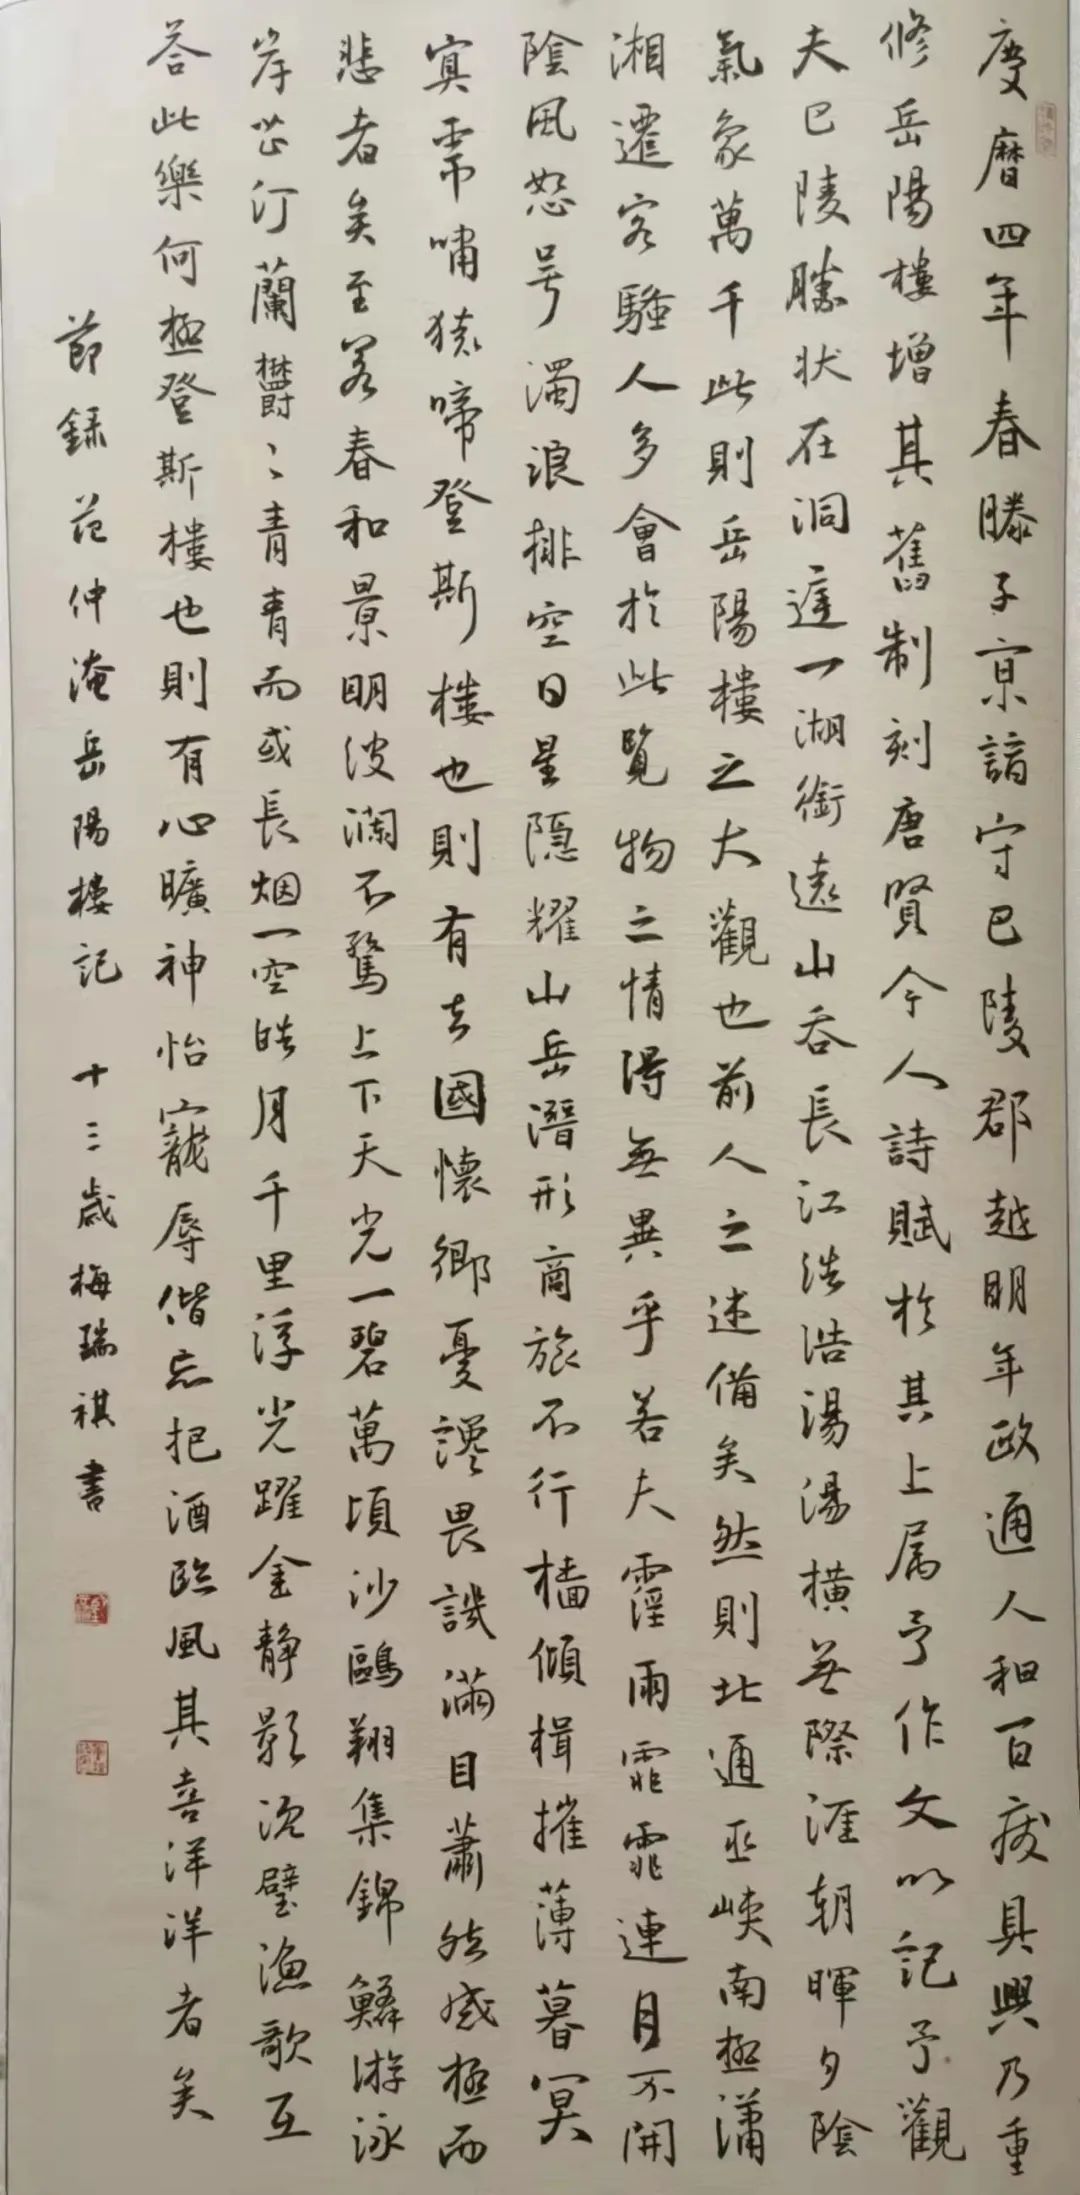 慶曆四年春滕子京謫守巴陵郡越明年政通人和百廢具興乃重
修岳陽樓增其舊制刻唐賢今人詩賦於其上属予作文以記予觀
夫巴陵勝状在洞庭一湖銜遠山吞長江浩浩湯湯橫無際涯朝暉夕陰
氣象萬千此則岳陽樓之大觀也前人之述備矣然則北通巫峽南極瀟
湘遷客騷人多會於此覽物之情得無異乎若夫霪雨霏霏連月不開
陰風怒号濁浪排空日星隱耀山岳潛形商旅不行檣傾楫摧薄暮冥
冥虎嘯猿啼登斯樓也則有去國懷鄉憂讒畏譏滿目蕭然感極而
悲者矣至若春和景明波瀾不驚上下天光一碧萬頃沙鷗翔集錦鱗游泳
岸芷汀蘭欝〻青青而或長烟一空皓月千里浮光躍金静影沉璧漁歌互
答此樂何極登斯樓也則有心曠神怡寵辱偕忘把酒臨風其喜洋洋者矣
節録范仲淹岳陽樓記 十三歲梅瑞祺書